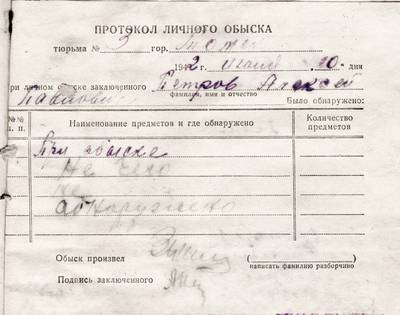 ПРОТОКОЛ ЛИЧНОГО ОБЫСКА
тюрьма № 3 гор.
1942 г. 10. дня
при личном обыске заключенного Петров Алексей
Павлович фамилия, имя и отчество Было обнаружено:
№№ п. п. Наименование предметов и где обнаружено Количество предметов
При обыске
Не чего
не
обнаружено
Обыск произвел ( )
написать фамилию разборчиво
Подпись заключенного